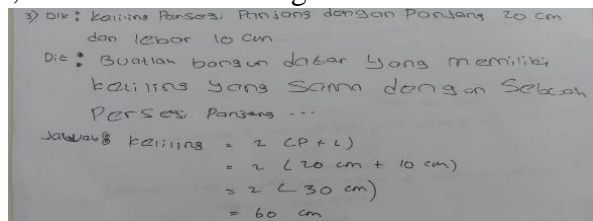 3) Dik : keliling Persegi Panjang dengan Panjang 20 cm
dan lebar 10 cm
Dit : Buatlah bangun datar yang memiliki
keliling yang sama dengan Sebuah
Persegi Panjang ...
Jawab : keliling = 2 (P + L)
= 2 (20 cm + 10 cm)
= 2 (30 cm)
= 60 cm